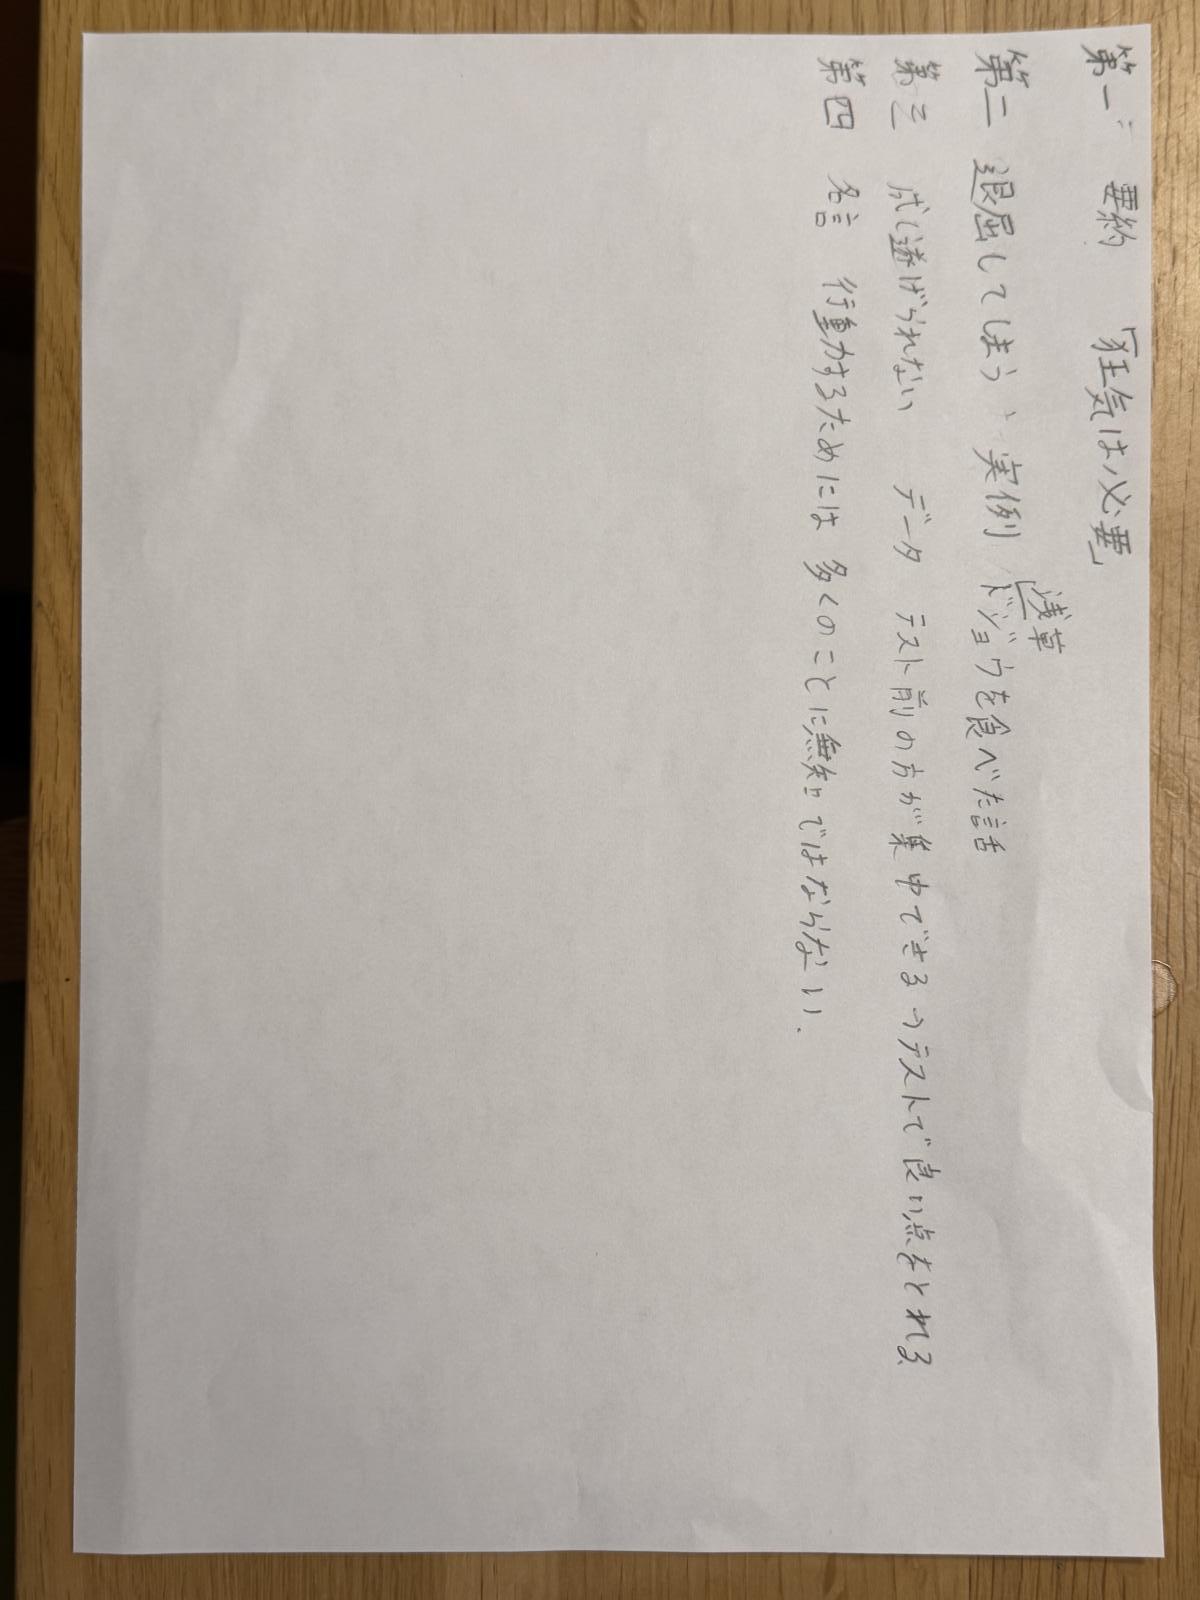 第一: 要約 「狂気は必要」
浅草
第二 退屈してしまう、実例 ドジョウを食べた話
第三 成し遂げられない データ テスト前の方が集中できる→テストで良い点をとれる
第四 名言 行動力するためには 多くのことに無知ではならない.